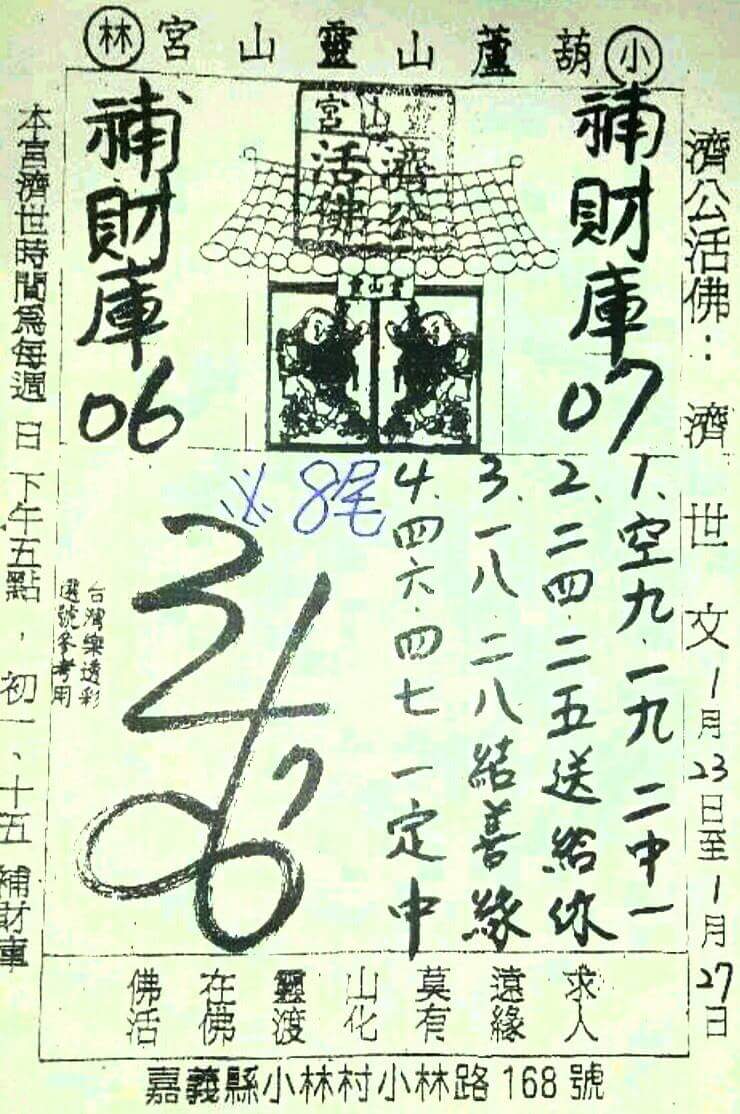 小葫蘆山靈山宮林
濟公活佛：濟世文 1月23日至1月27日
補財庫
07
靈山宮
濟公
活佛
補財庫
06
1、空九.一九 二中一
2、二四.二五送給你
3、一八.二八結善緣
4、四六.四七 一定中
必 8尾
台灣樂透彩
選號參考用
本宮濟世時間為每週日下午五點，初一、十五 補財庫
佛在靈山莫遠求
活佛渡化有緣人
嘉義縣小林村小林路168號